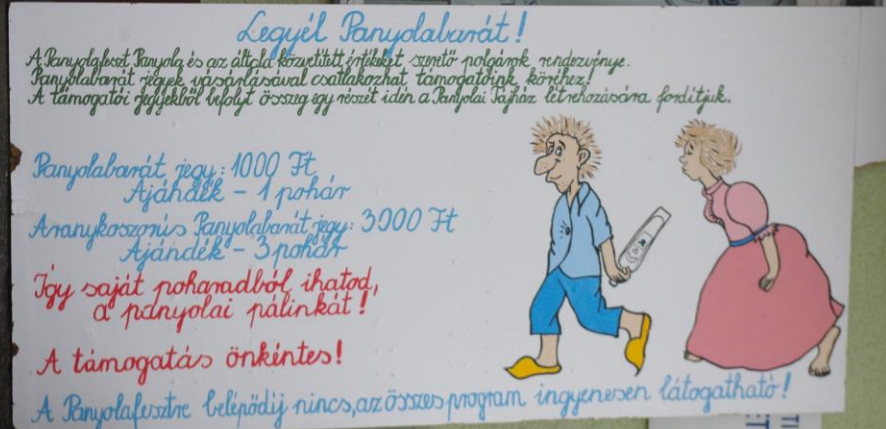 Legyél Panyolabarát!
A Panyolafeszt Panyola és az általa közvetített értékeket szerető polgárok rendezvénye.
Panyolabarát jegyek vásárlásával csatlakozhat támogatóink köréhez!
A támogatói jegyekből befolyt összeg egy részét idén a Panyolai Tájház létrehozására fordítjuk.
Panyolabarát jegy: 1000 Ft
Ajándék - 1 pohár
Aranykoszorús Panyolabarát jegy: 3000 Ft
Ajándék - 3 pohár
Így saját poharadból ihatod,
a panyolai pálinkát!
A támogatás önkéntes!
A Panyolafesztre belépődíj nincs, az összes program ingyenesen látogatható!